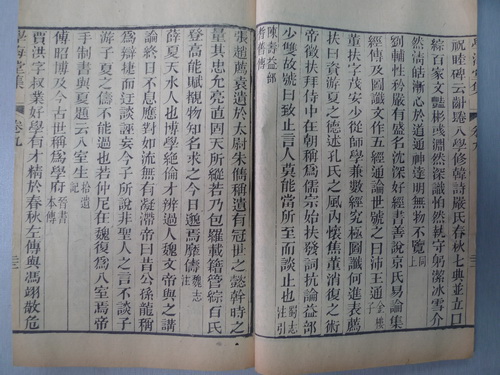 祝睦碑云入學修韓詩嚴氏春秋七典並立
綜百家文豔彬彧淵然深識怕然執守躬潔冰雪介
然清皜漸心於道通神達明無物不覽同上
劉輔性矜嚴有盛名沈深好經書善說京氏易論集
經傳及圖讖文作五經通論世號之曰沛王通金樓子
董扶字茂安少從師學兼數經究極圖讖何進表薦
扶曰資游夏之德述孔氏之風內懷焦董消復之術
帝徵扶拜侍中在朝稱爲儒宗始扶發詞抗論益部
少雙故號曰致止言人莫能當所至而談止也蜀志注引
陳壽益部耆舊傳
張趙薦袁遺於太尉朱儁稱遺有冠世之懿幹時之
量其忠允亮直因天所縱若乃包羅載籍管綜百氏
登高能賦覩物知名求之今日邈焉靡儔魏志注
薛夏天水人也博學絕倫才辨過人魏文帝與之講
論終日不息應對如流無有凝滯帝曰昔公孫龍稱
爲辯捷而迂談誣妄今子所說非聖人之言不談子
游子夏之儔不能過也若仲尼在魏復爲入室焉帝
手制書與夏題云入室生拾遺記
傅昭博及今古世稱爲學府晉書本傳
賈洪字叔業好學有才精於春秋左傳與馮翊敏危
學海堂集 卷九